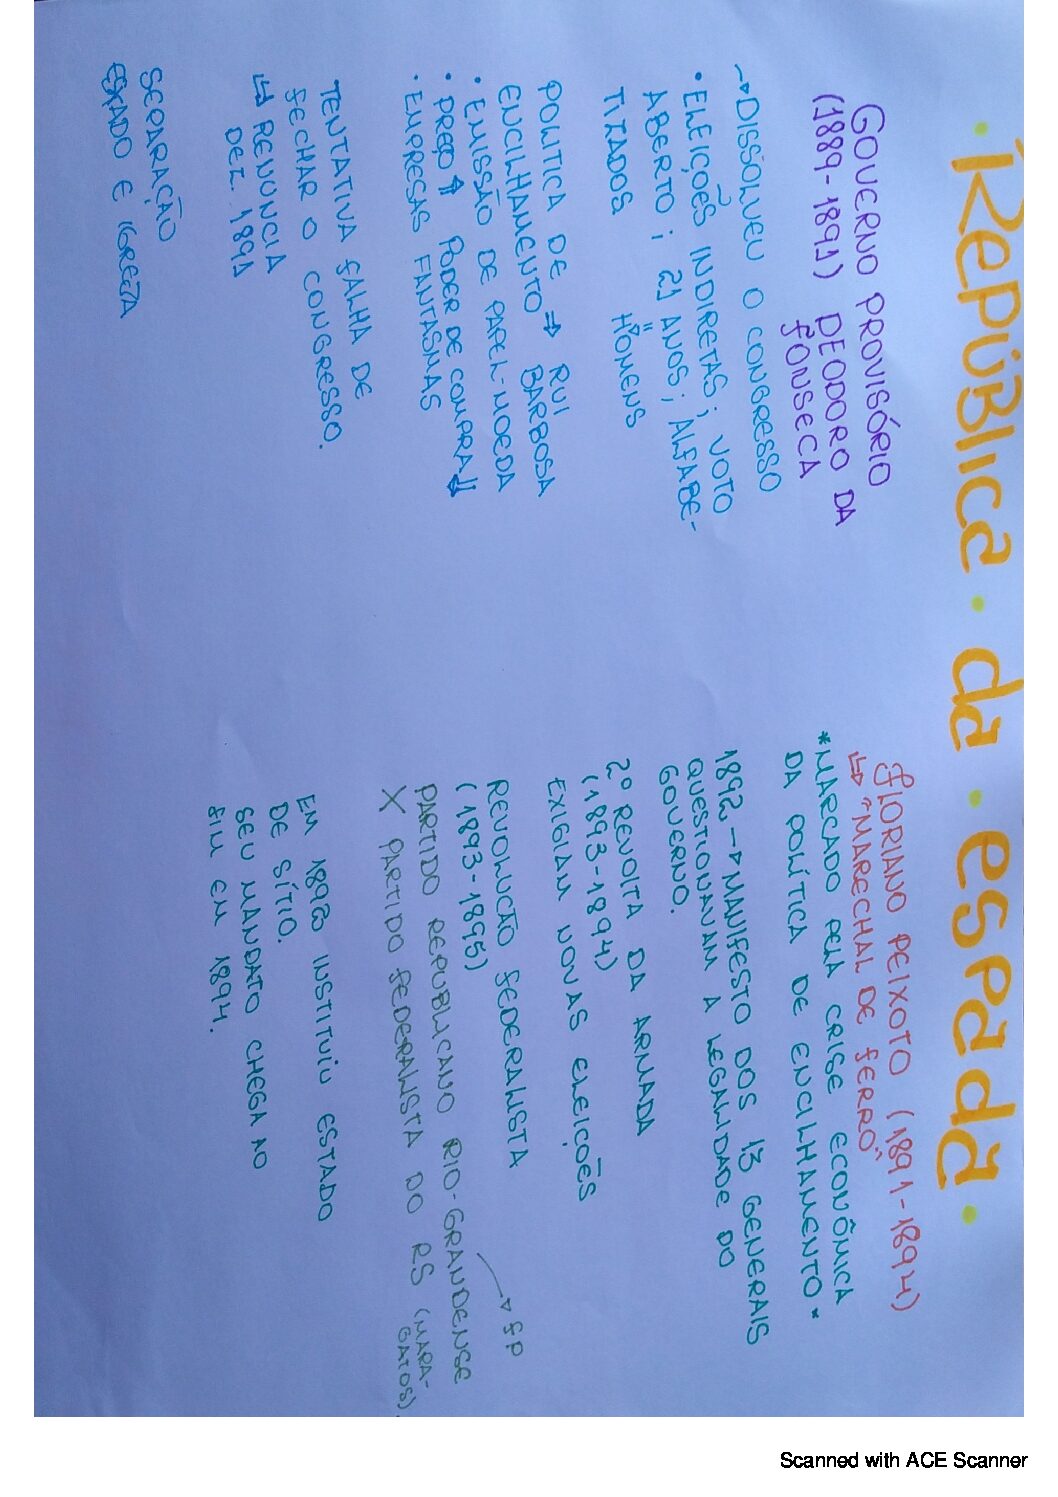 · República · da · espada ·
GOVERNO PROVISÓRIO
(1889-1891) DEODORO DA
FONSECA
→ DISSOLVEU O CONGRESSO
• ELEIÇÕES INDIRETAS; VOTO
ABERTO; 21 ANOS; ALFABE-
TIZADOS " HOMENS
POLITICA DE → RUI
ENCILHAMENTO BARBOSA
• EMISSÃO DE PAPEL-MOEDA
• PREÇO ↑ PODER DE COMPRA ↓
• EMPRESAS FANTASMAS
TENTATIVA FALHA DE
FECHAR O CONGRESSO.
↳ RENUNCIA
DEZ. 1891
SEPARAÇÃO
ESTADO E IGREJA
FLORIANO PEIXOTO (1891-1894)
↳ "MARECHAL DE FERRO"
*MARCADO PELA CRISE ECONÔMICA
DA POLÍTICA DE ENCILHAMENTO*
1892 → MANIFESTO DOS 13 GENERAIS
QUESTIONAVAM A LEGALIDADE DO
GOVERNO.
2º REVOLTA DA ARMADA
(1893-1894)
EXIGIAM NOVAS ELEIÇÕES
REVOLUCÃO FEDERALISTA
(1893-1895)
PARTIDO REPUBLICANO RIO-GRANDENSE → FP
X PARTIDO FEDERALISTA DO RS (MARA-
GATOS).
EM 1892 INSTITUIU ESTADO
DE SÍTIO.
SEU MANDATO CHEGA AO
FIM EM 1894.
Scanned with ACE Scanner